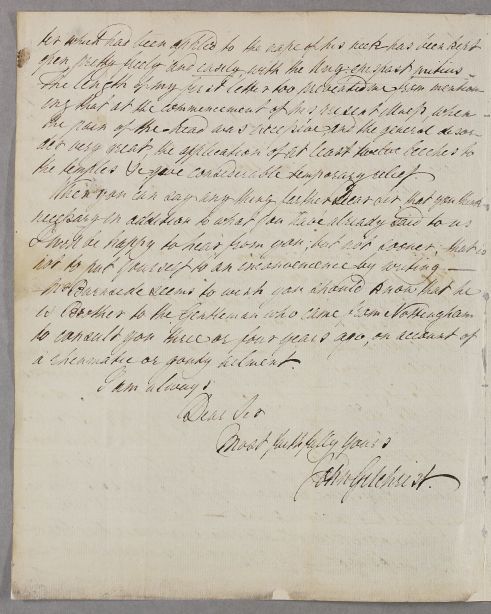 ter which had been applied to the nape of his neck has been kept
open pretty freely and easily with the Ung:
The length of my first letter too prevented me from mention-
ing that at the commencement of his present illness, when
the pain of the head was excessive, and the general disor-
der very great, the application of at least twelve leeches to
the temples &c gave considerable temporary relief
When you can say any thing further Dear sir that you think
necessary in addition to what you have already said to us
I will be happy to hear from you, but not sooner; that is
not to put yourself to an inconvenience by writing —
Mr Burnside seems to wish you should know that he
is Brother to the gentleman who came from Nottingham
to consult you three or four years ago, on account of
a rheumatic or gouty ailment.
I am always
Dear Sir
Most faithfully yours
John Gilchrist.